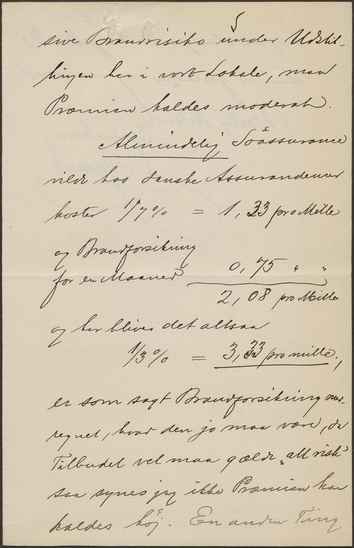 5
sive Brandrisiko under Udstil-
lingen her i vort Lokale, maa
Præmien kaldes moderat.
Almindelig Söassurance
vilde hos danske Assurandeurer
koster 1/7 % = 1,33 pro Mille
og Brandforsikring
for en Maaned 0,75 " "
2,08 pro Mille
og her bliver det altsaa
1/3 % = 3,33 pro mille,
er som sagt Brandforsikring
regnet, hvad den jo maa være, da
Tilbudet vel maa gælde "all risk"
saa synes jeg ikke Præmien kan
kaldes høj. En anden Ting